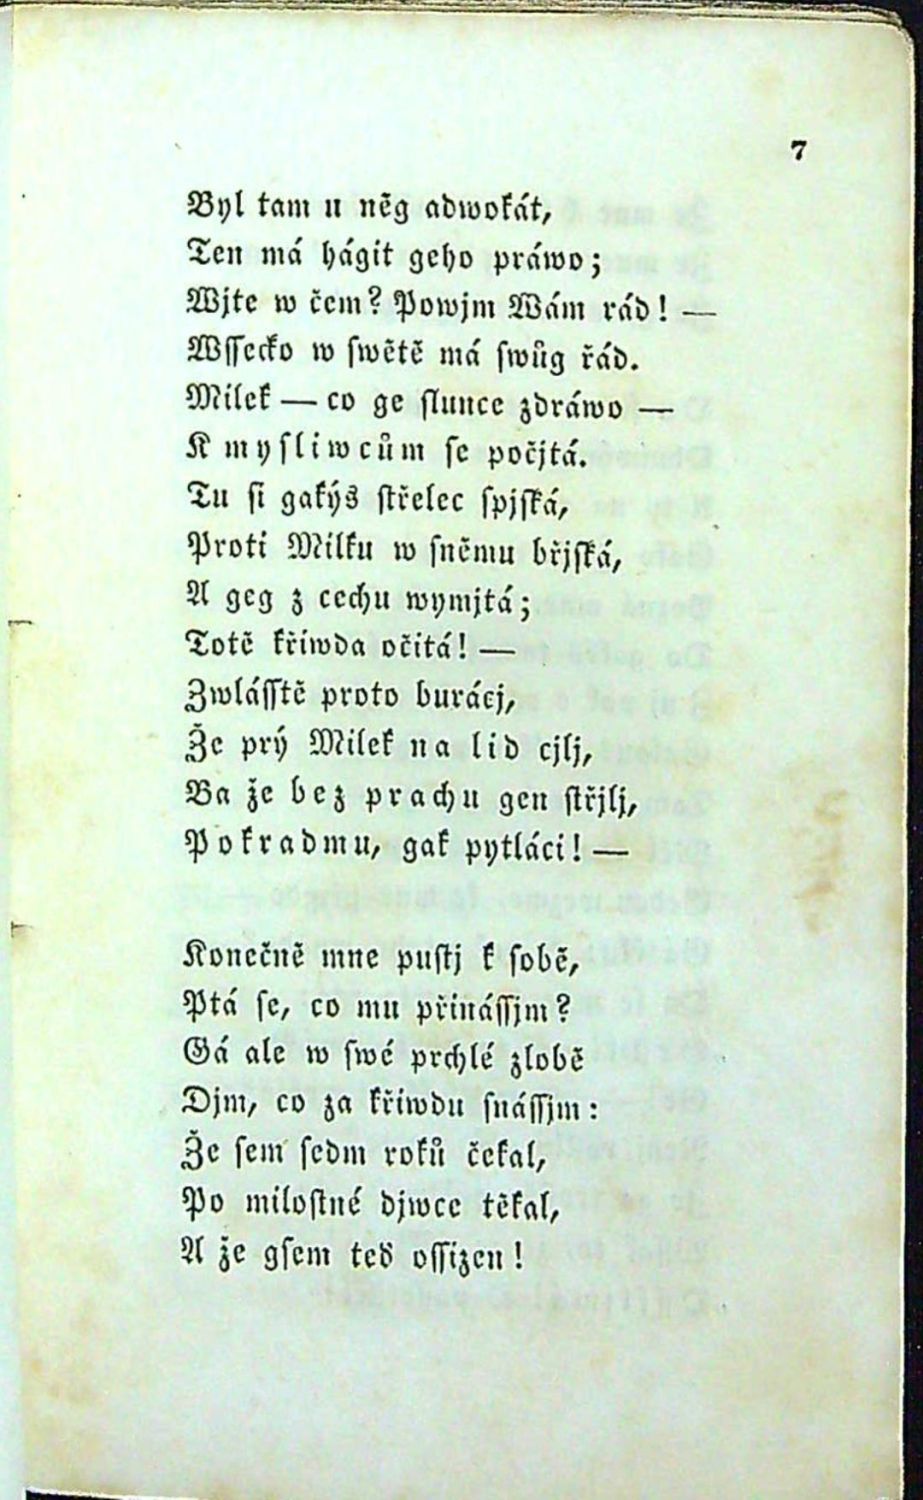 7
Byl tam u něg adwokát,
Ten má hágit geho práwo;
Wjte w čem? Powjm Wám rád! —
Wſſecko w ſwětě má ſwůg řád.
Milek — co ge ſlunce zdráwo —
K myſliwcům ſe počjtá.
Tu ſi gakýs ſtřelec ſpjſká,
Proti Milku w ſněmu břjſká,
A geg z cechu wymjtá;
Totě křiwda očitá! —
Zwláſſtě proto burácj,
Že prý Milek na lid cjlj,
Ba že bez prachu gen ſtřjlj,
Pokradmu, gak pytláci! —
Konečně mne puſtj k ſobě,
Ptá ſe, co mu přináſſjm?
Gá ale w ſwé prchlé zlobě
Djm, co za křiwdu ſnáſſjm:
Že ſem ſedm roků čekal,
Po miloſtné djwce těkal,
A že gſem teď oſſizen!